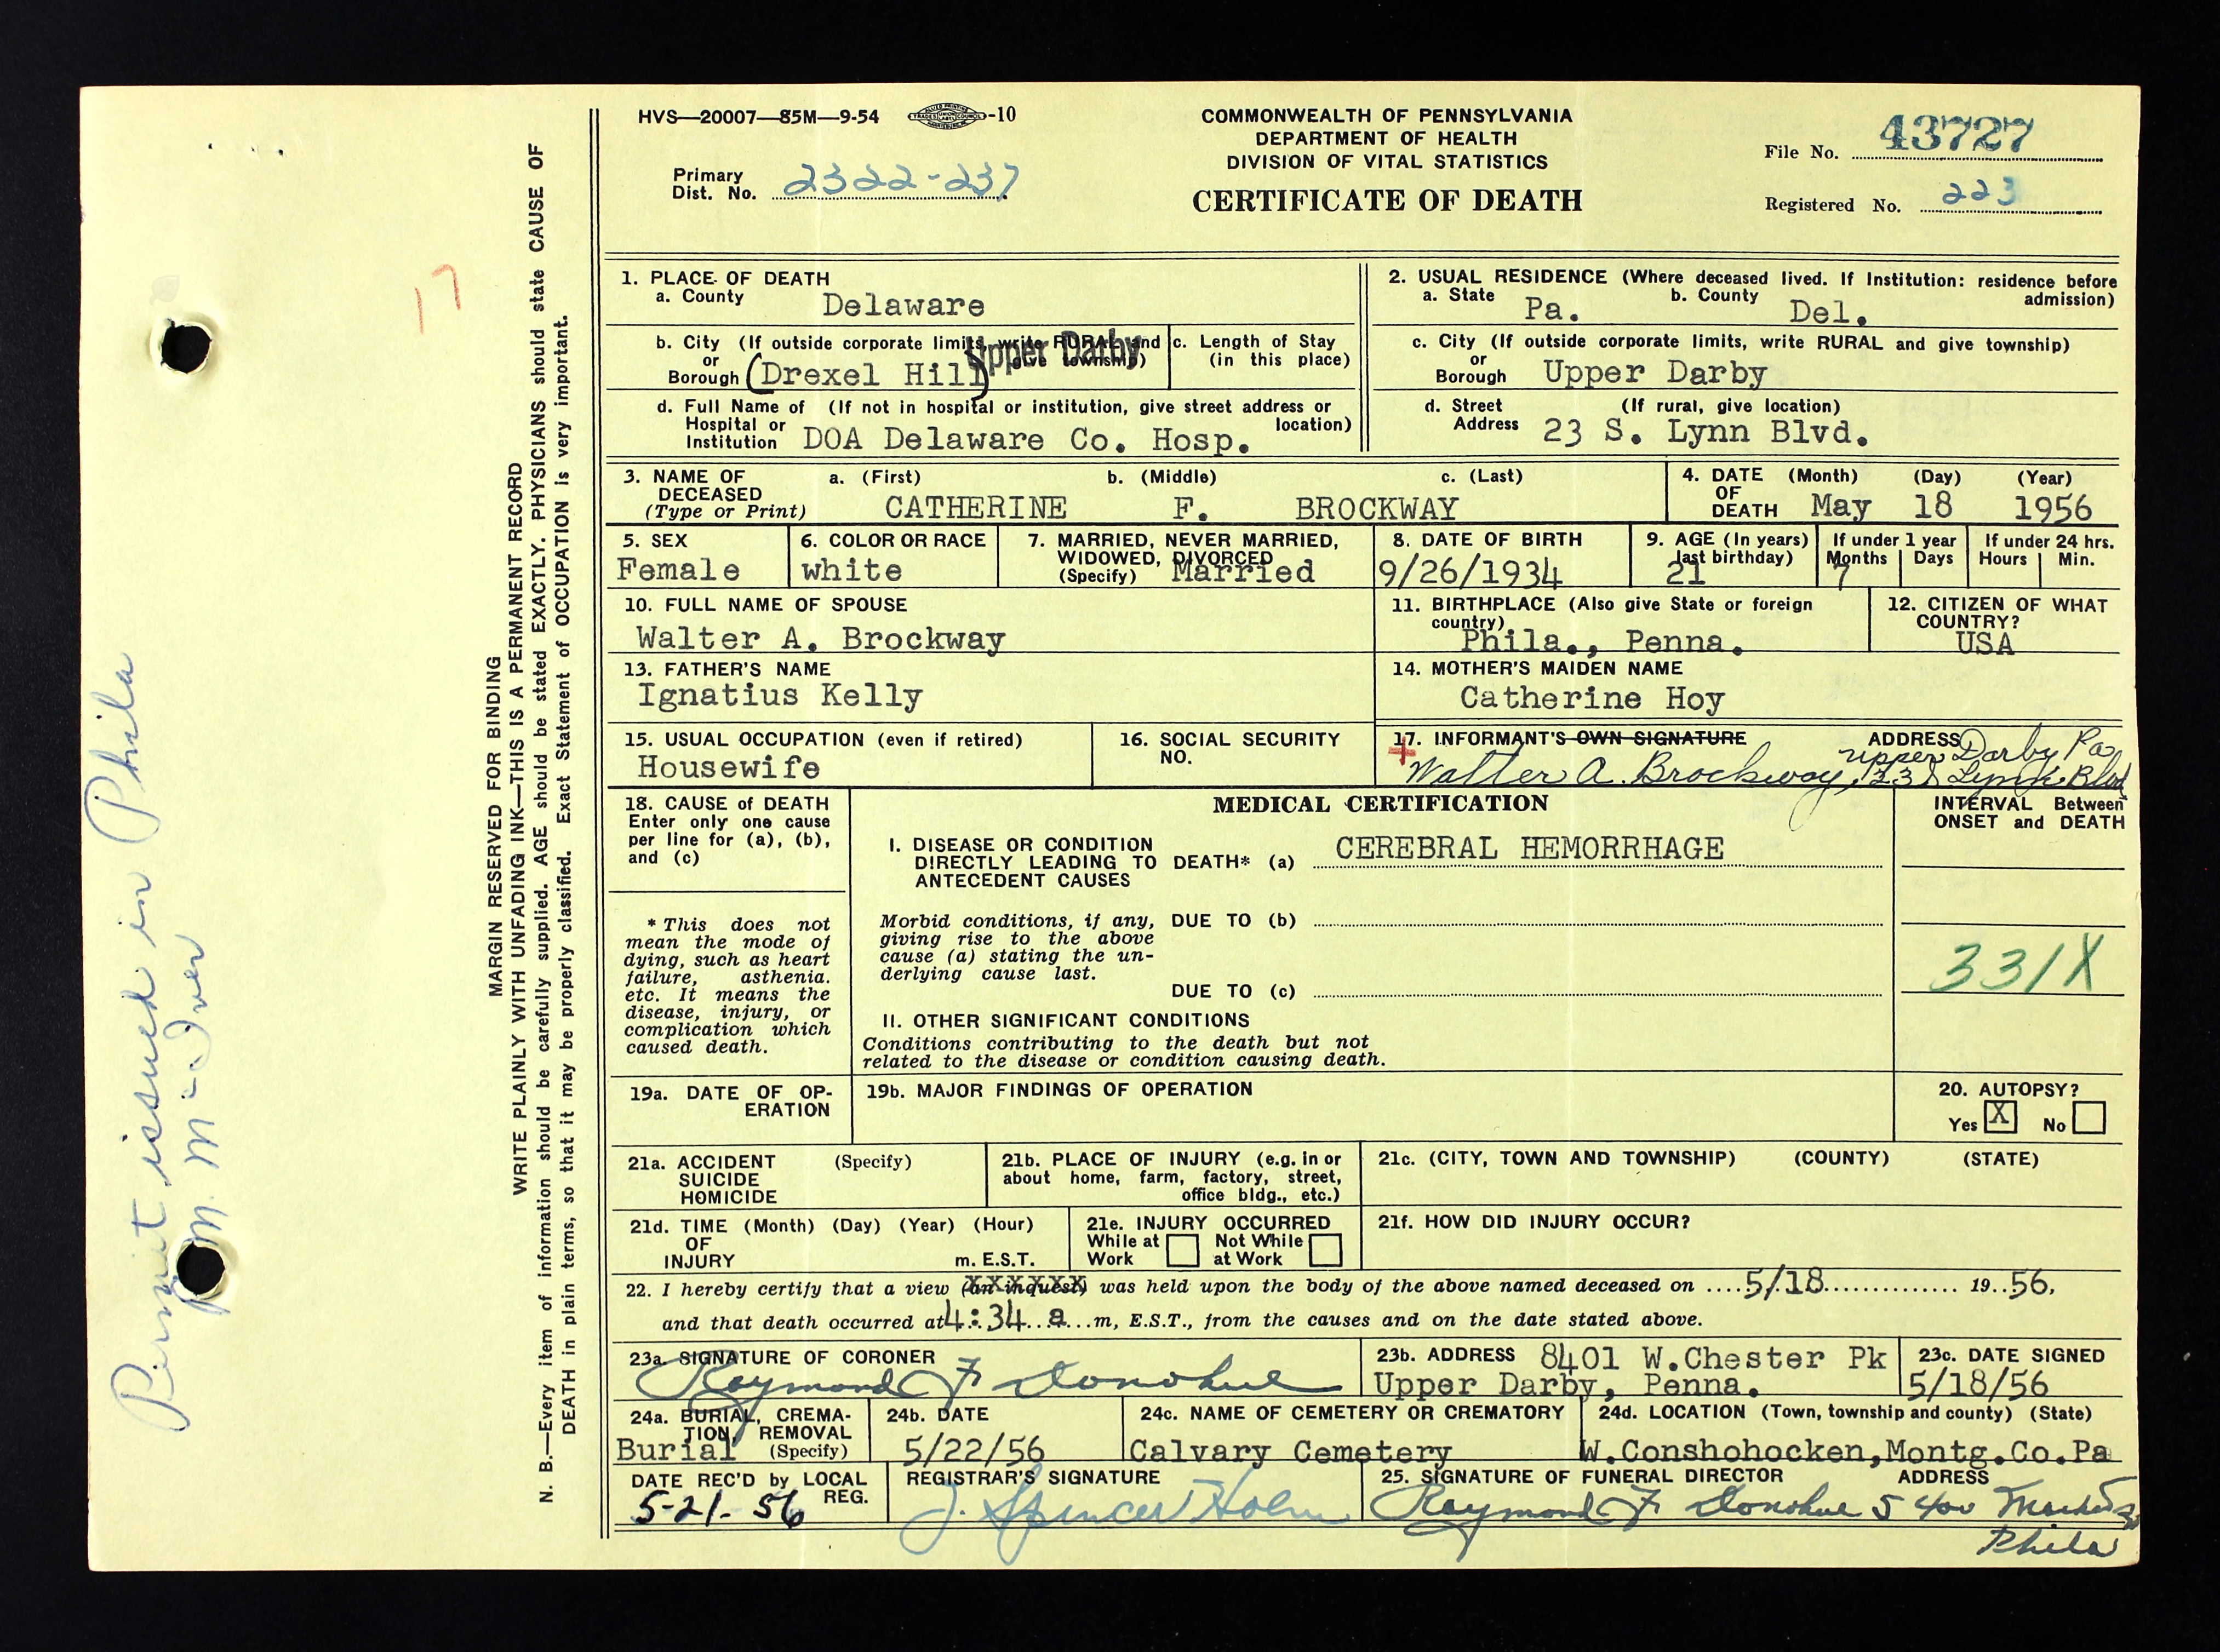 HVS—20007—85M—9-54 -10
COMMONWEALTH OF PENNSYLVANIA
DEPARTMENT OF HEALTH
DIVISION OF VITAL STATISTICS
CERTIFICATE OF DEATH
Primary
Dist. No. 2322-237
File No. 43727
Registered No. 223
1. PLACE OF DEATH
a. County Delaware
b. City (If outside corporate limits, write RURAL and give township)
or
Borough (Drexel Hill) Upper Darby
c. Length of Stay
(in this place)
d. Full Name of (If not in hospital or institution, give street address or
Hospital or location)
Institution DOA Delaware Co. Hosp.
2. USUAL RESIDENCE (Where deceased lived. If Institution: residence before
admission)
a. State Pa. b. County Del.
c. City (If outside corporate limits, write RURAL and give township)
or
Borough Upper Darby
d. Street (If rural, give location)
Address 23 S. Lynn Blvd.
3. NAME OF a. (First) b. (Middle) c. (Last)
DECEASED
(Type or Print) CATHERINE F. BROCKWAY
4. DATE (Month) (Day) (Year)
OF
DEATH May 18 1956
5. SEX
Female
6. COLOR OR RACE
white
7. MARRIED, NEVER MARRIED,
WIDOWED, DIVORCED
(Specify) Married
8. DATE OF BIRTH
9/26/1934
9. AGE (In years
last birthday)
21
If under 1 year
Months Days
7
If under 24 hrs.
Hours Min.
10. FULL NAME OF SPOUSE
Walter A. Brockway
11. BIRTHPLACE (Also give State or foreign
country)
Phila., Penna.
12. CITIZEN OF WHAT
COUNTRY?
USA
13. FATHER'S NAME
Ignatius Kelly
14. MOTHER'S MAIDEN NAME
Catherine Hoy
15. USUAL OCCUPATION (even if retired)
Housewife
16. SOCIAL SECURITY
NO.
17. INFORMANT'S OWN SIGNATURE ADDRESS Upper Darby Pa
Walter A. Brockway, 23 S Lynn Blvd
18. CAUSE of DEATH
Enter only one cause
per line for (a), (b),
and (c)
* This does not
mean the mode of
dying, such as heart
failure, asthenia.
etc. It means the
disease, injury, or
complication which
caused death.
MEDICAL CERTIFICATION
INTERVAL Between
ONSET and DEATH
I. DISEASE OR CONDITION
DIRECTLY LEADING TO DEATH* (a) CEREBRAL HEMORRHAGE
ANTECEDENT CAUSES
Morbid conditions, if any, DUE TO (b)
giving rise to the above
cause (a) stating the un-
derlying cause last.
DUE TO (c)
331X
II. OTHER SIGNIFICANT CONDITIONS
Conditions contributing to the death but not
related to the disease or condition causing death.
19a. DATE OF OP-
ERATION
19b. MAJOR FINDINGS OF OPERATION
20. AUTOPSY?
Yes X No
21a. ACCIDENT (Specify)
SUICIDE
HOMICIDE
21b. PLACE OF INJURY (e.g. in or
about home, farm, factory, street,
office bldg., etc.)
21c. (CITY, TOWN AND TOWNSHIP) (COUNTY) (STATE)
21d. TIME (Month) (Day) (Year) (Hour)
OF
INJURY m. E.S.T.
21e. INJURY OCCURRED
While at Not While
Work at Work
21f. HOW DID INJURY OCCUR?
22. I hereby certify that a view (an inquest) was held upon the body of the above named deceased on 5/18 19 56,
and that death occurred at 4:34 a m, E.S.T., from the causes and on the date stated above.
23a. SIGNATURE OF CORONER
Raymond F Donohue
23b. ADDRESS 8401 W.Chester Pk
Upper Darby, Penna.
23c. DATE SIGNED
5/18/56
24a. BURIAL, CREMA-
TION, REMOVAL
Burial (Specify)
24b. DATE
5/22/56
24c. NAME OF CEMETERY OR CREMATORY
Calvary Cemetery
24d. LOCATION (Town, township and county) (State)
W.Conshohocken,Montg.Co.Pa
DATE REC'D by LOCAL
REG.
5-21-56
REGISTRAR'S SIGNATURE
J. Spencer Holm
25. SIGNATURE OF FUNERAL DIRECTOR ADDRESS
Raymond F Donohue 5400 Market St
Phila
MARGIN RESERVED FOR BINDING
WRITE PLAINLY WITH UNFADING INK—THIS IS A PERMANENT RECORD
N. B.—Every item of information should be carefully supplied. AGE should be stated EXACTLY. PHYSICIANS should state CAUSE OF
DEATH in plain terms, so that it may be properly classified. Exact Statement of OCCUPATION is very important.
17
Permit issued in Phila